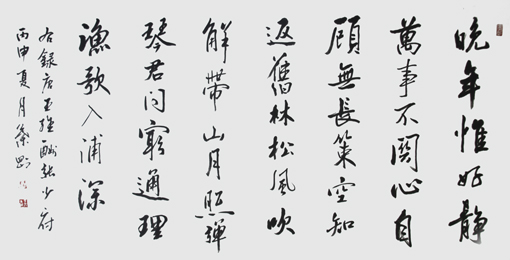 晚年惟好静
萬事不關心自
顧無長策空知
返舊林松風吹
解帶山月照彈
琴君問窮通理
漁歌入浦深
右録唐王維酬張少府
丙申夏月